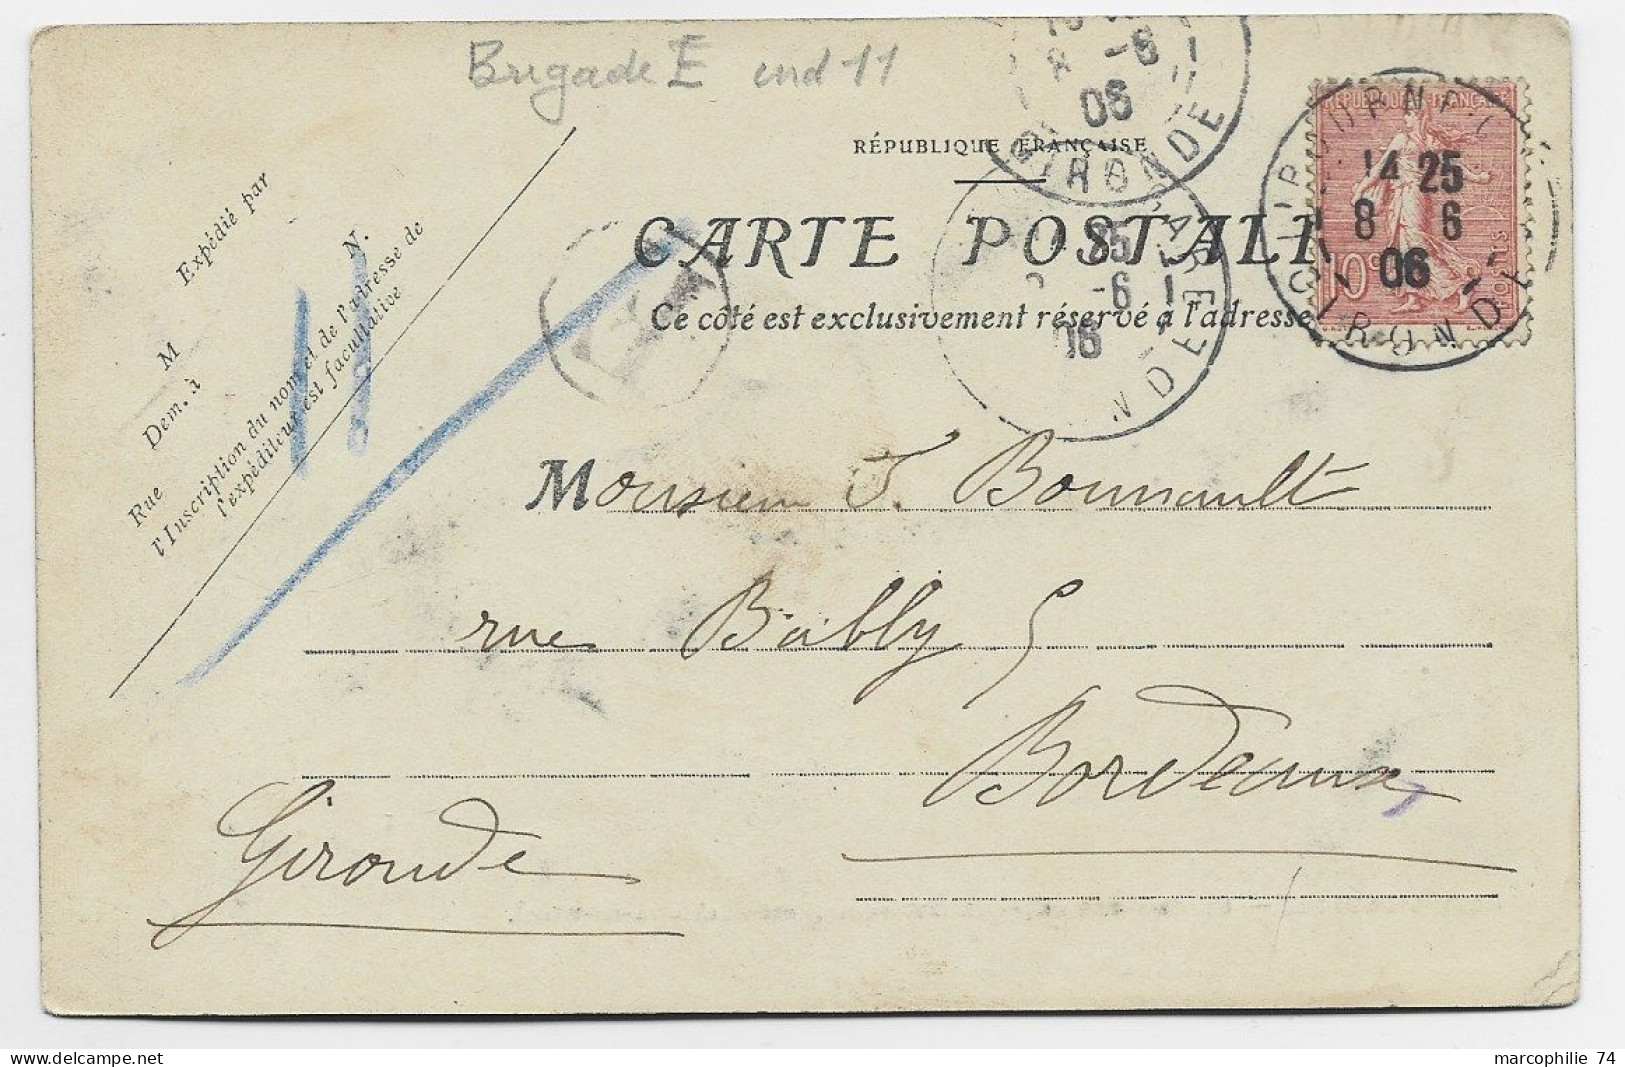 Brigade E ind 11
RÉPUBLIQUE FRANÇAISE
CARTE POSTALE
Ce côté est exclusivement réservé à l'adresse
Expédié par
M N.
Dem. à
Rue
l'Inscription du nom et de l'adresse de
l'expéditeur est facultative
11
-6
06
GIRONDE
25
-6
06
NDE
RÉPUBLIQUE FRANÇAISE
10c
POSTES
14 25
8 6
06
GIRONDE
Monsieur J. Bounault
rue Bably 5
Bordeaux
Gironde
marcophilie 74